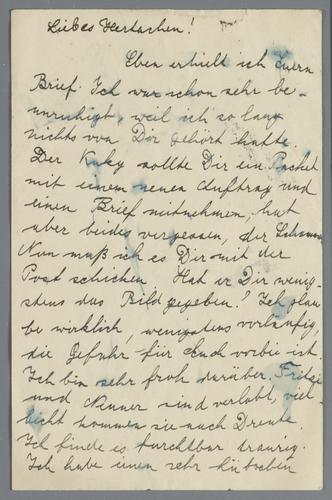 Liebes Hertachen!
Eben erhielt ich Euern
Brief. Ich war schon sehr be-
unruhigt, weil ich so lang
nichts von Dir gehört hatte.
Der Kuky sollte Dir ein Packet
mit einem neuen Auftrag und
einen Brief mitnehmen, hat
aber beides vergessen, der
Nun muß ich es Dir mit der
Post schicken. Hat er Dir wenig-
stens das Bild gegeben? Ich glau
be wirklich, wenigstens vorläufig,
die Gefahr für Euch vorbie ist.
Ich bin sehr froh darüber.
und sind verlobt, viel
leicht kommen sie nach Drente.
Ich finde es furchtbar traurig.
Ich habe einen sehr hübschen